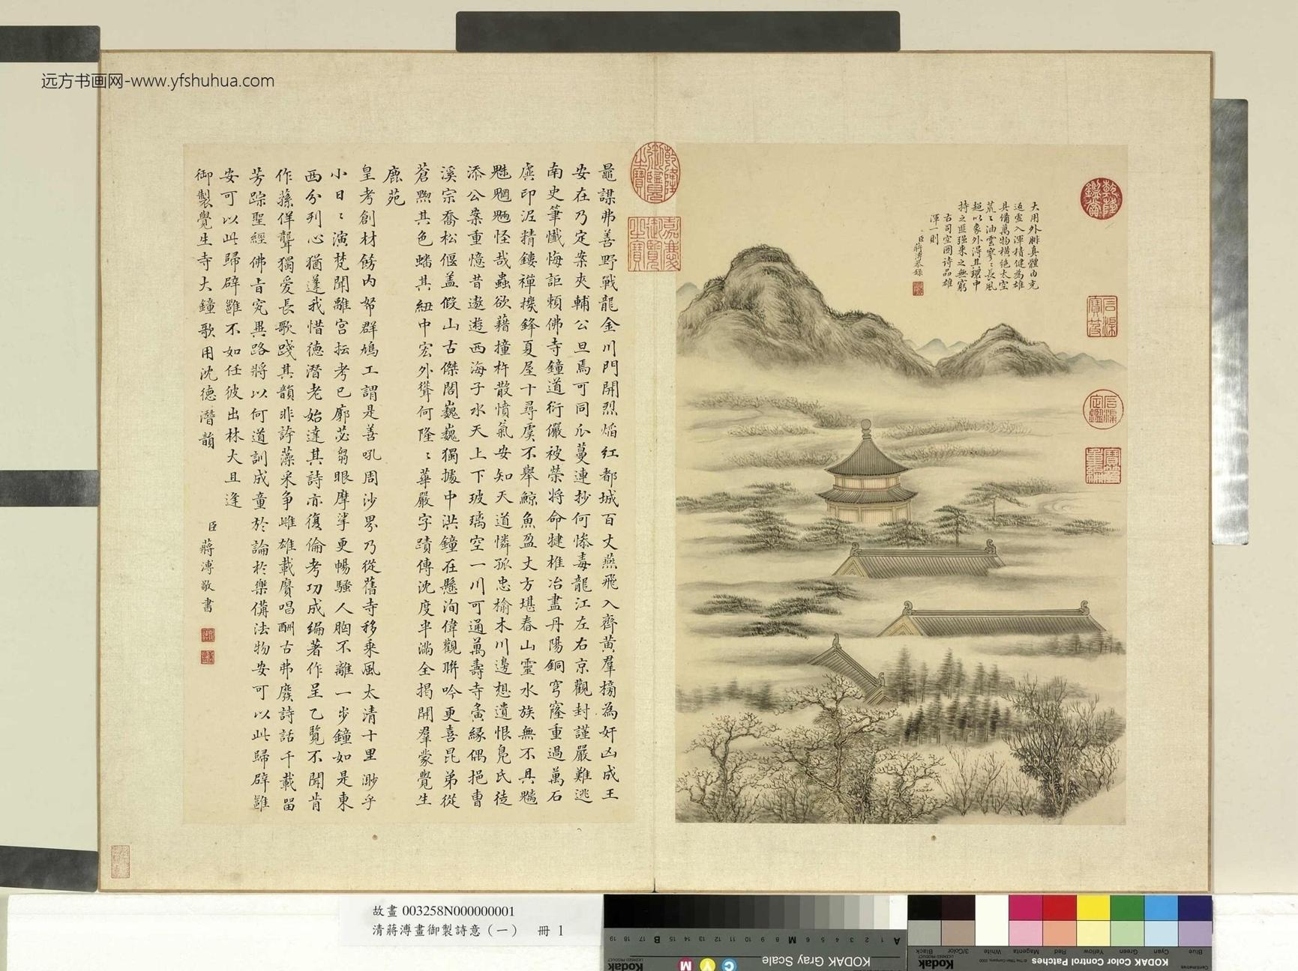 远方书画网-www.yfshuhua.com
大用外腓真體內充
返虛入渾積健為雄
具備萬物橫絕太空
荒荒油雲寥寥長風
超以象外得其環中
持之匪强来之無窮
右司空圖诗品雄
渾一則
臣蔣溥恭錄
乾隆御覽之寶
嘉慶御覽之寶
乾隆鑑賞
石渠寶笈
石渠定鑑
寶笈重編
黽謀弗善野戰龍金川門開烈焰紅都城百丈燕飛入齊黃羣榜為奸凶成王
安在乃定案夾輔公旦焉可同瓜蔓連抄何慘毒龍江左右京觀封謹嚴難逃
南史筆懺悔詎賴佛寺鐘道衍儼被榮將命揵椎冶盡丹陽銅穹窿重過萬石
虡印泥精鏤禪機鋒夏屋十尋虡不舉鯨魚盈丈方堪舂山靈水族無不具魑
魅魍魎怪哉蟲欲藉撞杵散憤氣安知天道憐孤忠榆木川邊想遺恨鳧氏徒
添公案重憶昔遨遊西海子水天上下玻璃空一川可通萬壽寺夤緣偶挹曹
溪宗喬松偃盖假山古傑閣巍巍獨據中洪鐘在懸洵偉觀聯吟更喜昆弟從
蒼黝其色蟠其紐中宏外聳何隆隆華嚴字蹟傳沈度半滿全揭開羣蒙覺生
鹿苑
皇考創材餝內帑群鳩工謂是善吼周沙界乃從舊寺移乘風太清十里渺乎
小日日演梵聞離宮抎考已廓苾芻眼摩挲更暢騷人胸不離一步鐘如是東
西分别心猶蓬我惜德潛老始達其詩亦復倫考功成編著作呈乙覽不聞肯
作蒜佯聾獨愛長歌踐其韻非誇藻采争雌雄載賡唱酬古弗廢詩話千載留
芳踪聖經佛旨究異路將以何道訓成童於論於樂備法物安可以此歸辟雍
安可以此歸辟雖不如任彼出林大且逢
御製覺生寺大鐘歌用沈德潛韻
臣蔣溥敬書
故畫 003258N000000001
清蔣溥畫御製詩意（一） 冊 1
KODAK Gray Scale
KODAK Color Control Patches
Kodak